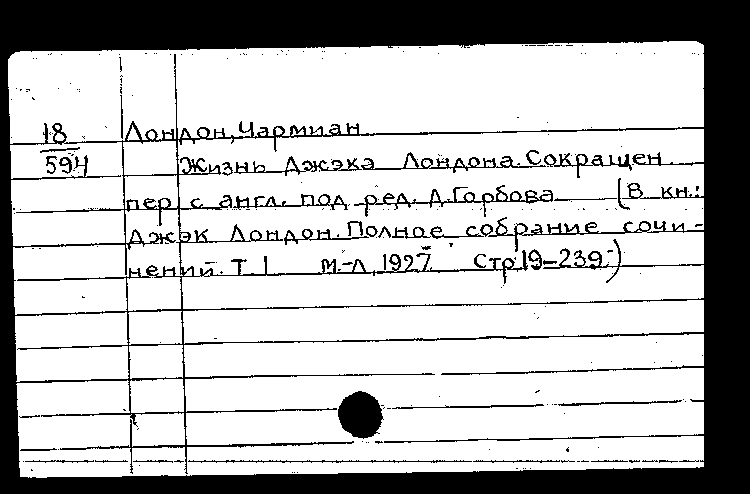 18 Лондон, Чармиан
594 Жизнь Джэка Лондона. Сокращен.
пер. с англ. под ред. Д. Горбова (В кн.:
Джэк Лондон. Полное собрание сочи-
нений. Т. 1 М.-Л, 1927. Стр 19-239.)